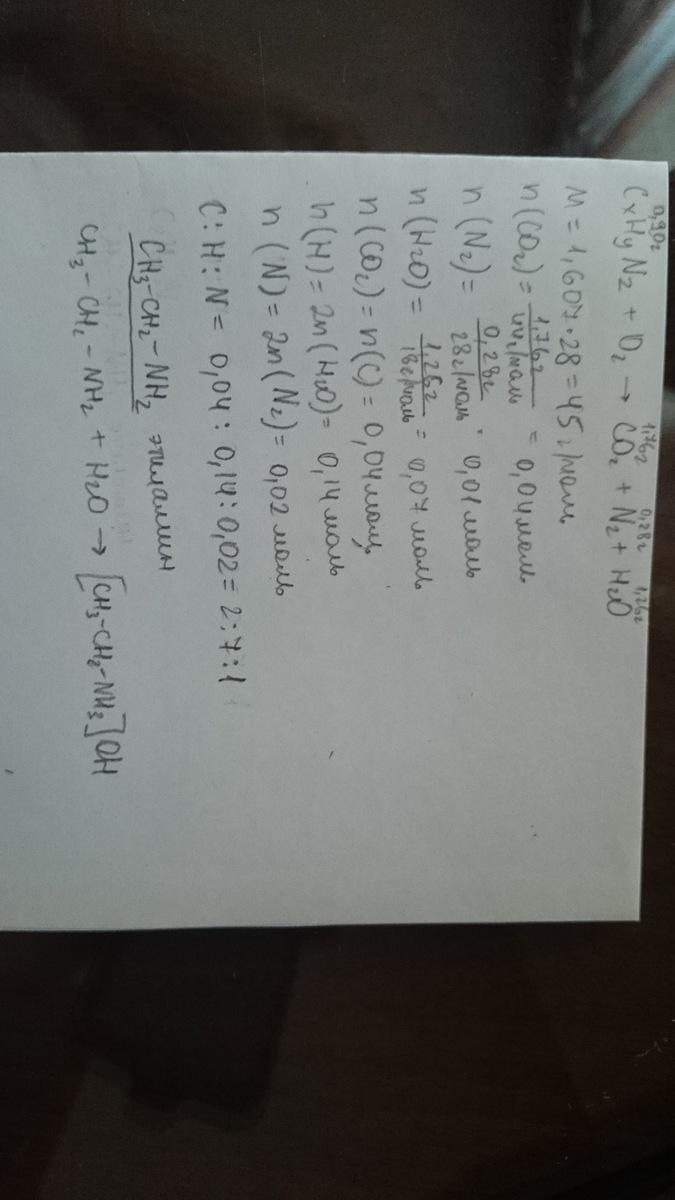 0,90г 1,76г 0,28г 1,26г
CxHyNz + O2 → CO2 + N2 + H2O
M = 1,607·28 = 45 г/моль
n(CO2) = 1,76г / 44г/моль = 0,04 моль
n(N2) = 0,28г / 28г/моль = 0,01 моль
n(H2O) = 1,26г / 18г/моль = 0,07 моль
n(CO2) = n(C) = 0,04 моль
n(H) = 2n(H2O) = 0,14 моль
n(N) = 2n(N2) = 0,02 моль
C:H:N = 0,04:0,14:0,02 = 2:7:1
CH3CH2-NH2 этиламин
CH3-CH2-NH2 + H2O → [CH3-CH2-NH3]OH